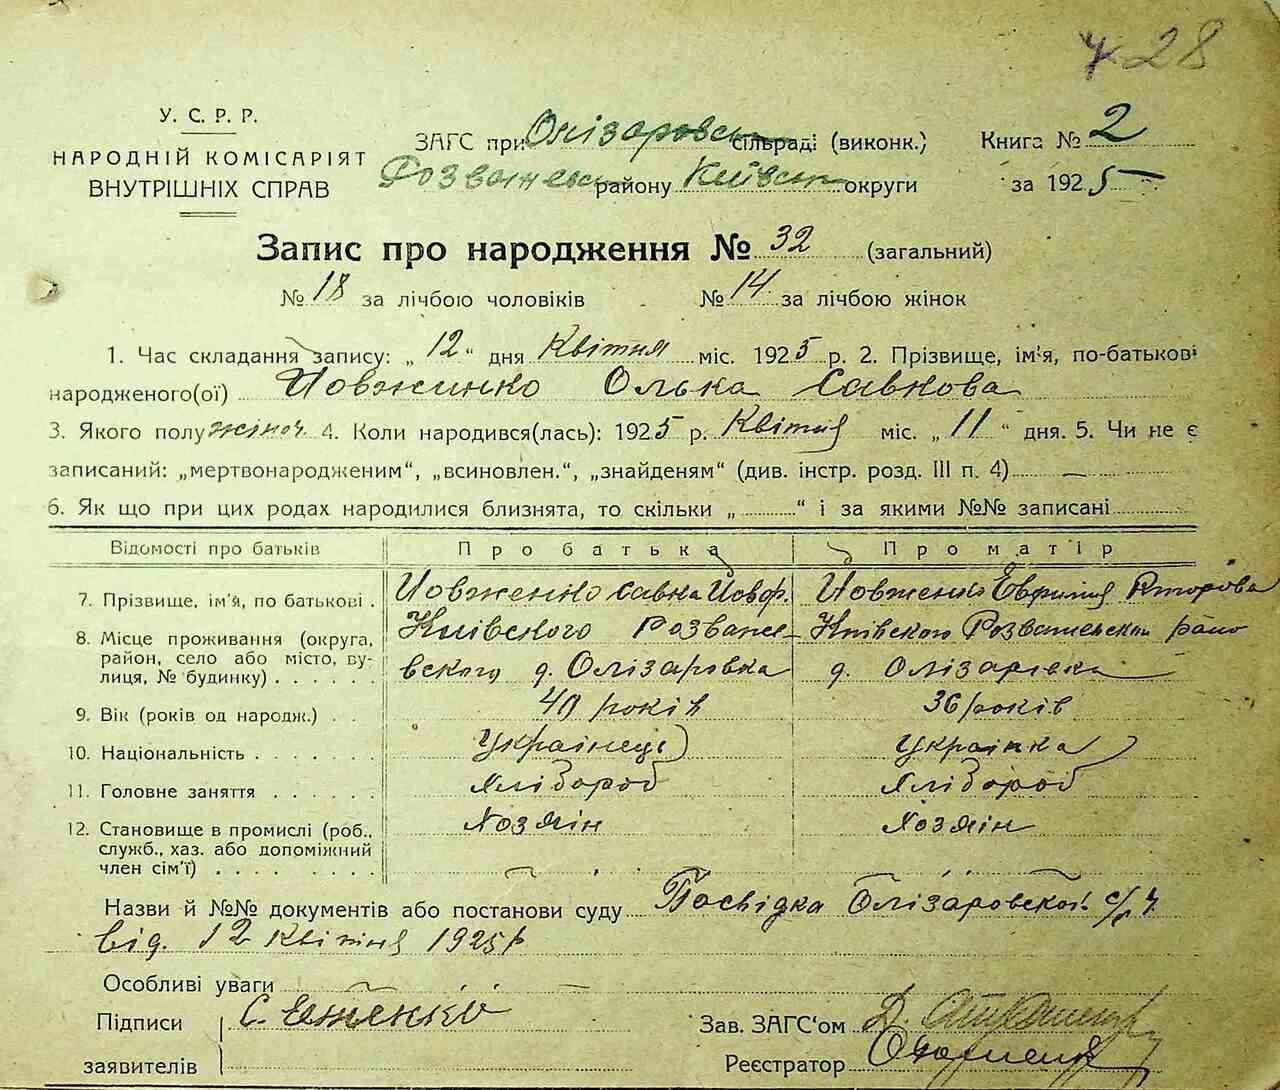 28
У. С. Р. Р.
НАРОДНІЙ КОМІСАРІЯТ
ВНУТРІШНІХ СПРАВ
ЗАГС при Олізаровск сільраді (виконк.) Книга № 2
Розважевск району Київск округи за 1925
Запис про народження № 32 (загальний)
№ 18 за лічбою чоловіків № 14 за лічбою жінок
1. Час складання запису: „ 12 “ дня Квітня міс. 1925 р. 2. Прізвище, ім'я, по-батькові
народженого(ої) Олька Савкова
3. Якого полу жіноч. 4. Коли народився(лась): 1925 р. Квітня міс. „ 11 “ дня. 5. Чи не є
записаний: „мертвонародженим“, „всиновлен.“, „знайденям“ (див. інстр. розд. III п. 4) —
6. Як що при цих родах народилися близнята, то скільки „ “ і за якими №№ записані
Відомості про батьків Про батька Про матір
7. Прізвище, ім'я, по батькові . Савка
8. Місце проживання (округа, район, село або місто, вулиця, № будинку) . . . . .
Київского Розваже-
вского д. Олізаровка
Київского Розважевского райо
д. Олізаровка
9. Вік (років од народж.) . . 40 років 36 років
10. Національність . . . . . . . Українець Українка
11. Головне заняття . . . . . . Хлібороб Хлібороб
12. Становище в промислі (роб., служб., хаз. або допоміжний член сім'ї) . . . . . . . . Хозяїн Хозяїн
Назви й №№ документів або постанови суду Посвідка Олізаровской с/р ч.
від. 12 Квітня 1925 р
Особливі уваги
Підписи С.
заявителів
Зав. ЗАГС'ом
Реєстратор